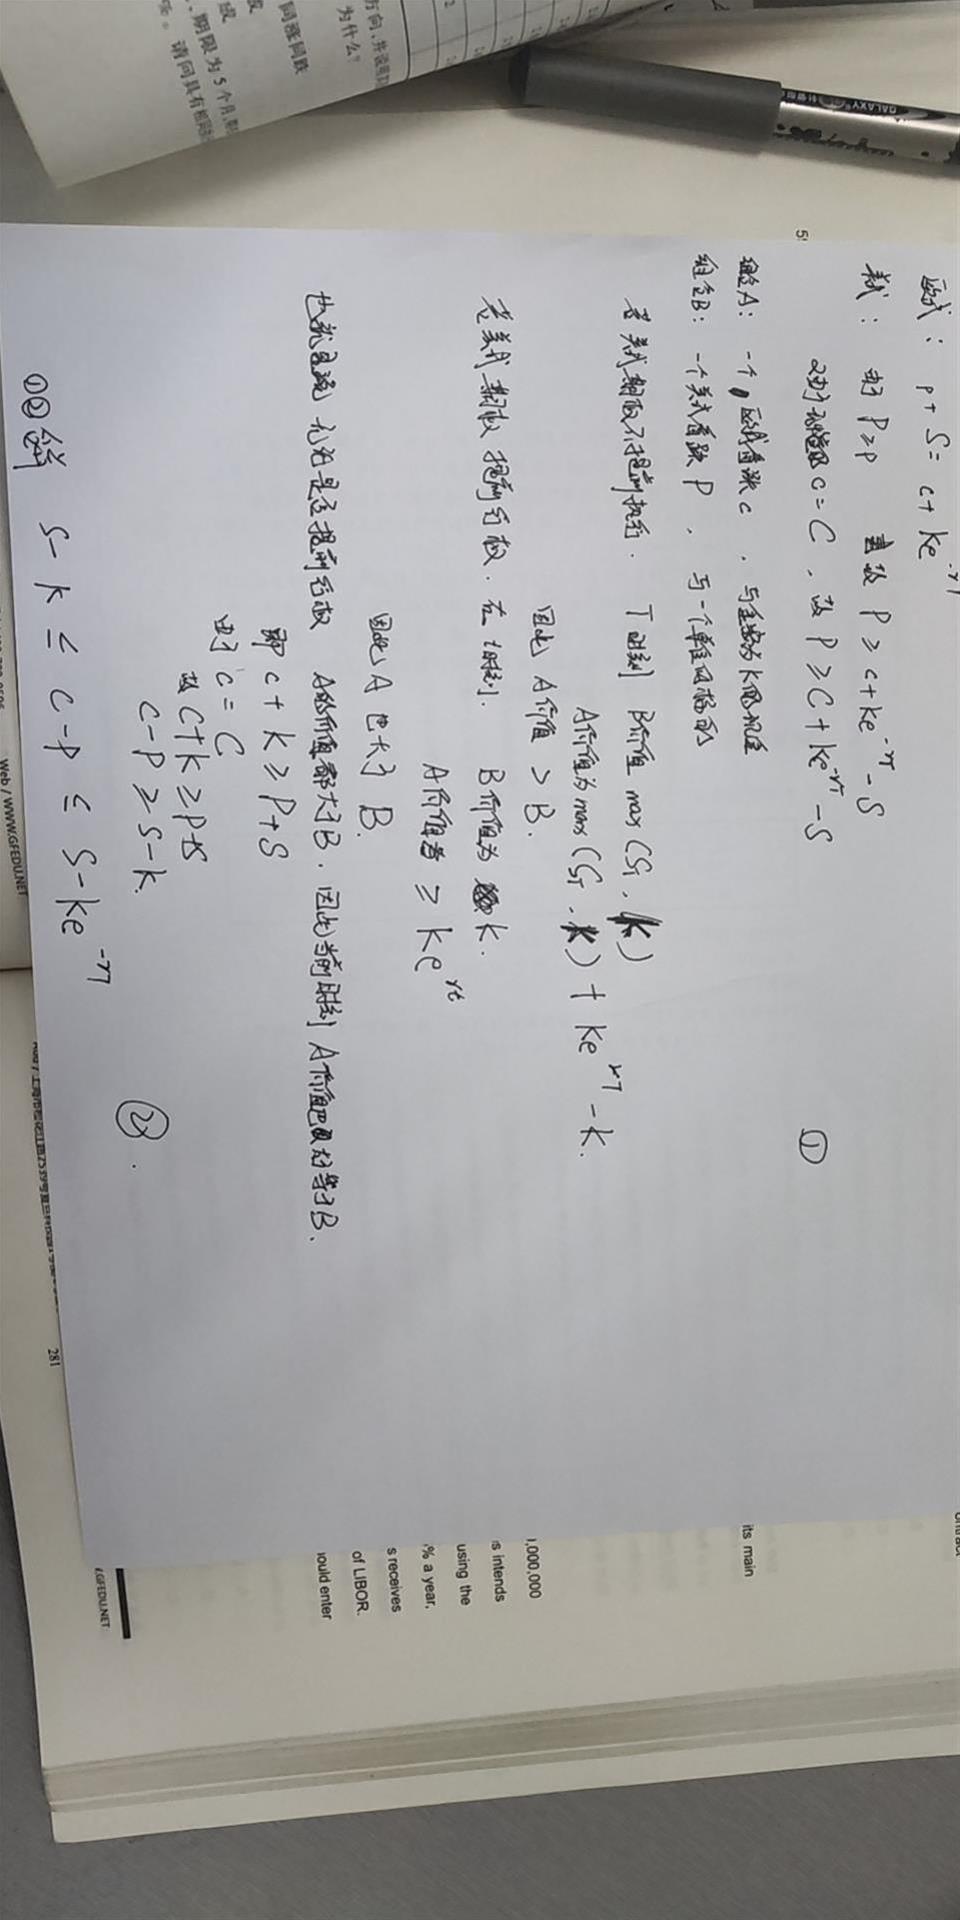 欧式： p + S = c + Ke^-rT
美式： 由于 P ≥ p 故 P ≥ c + Ke^-rT - S
又由于 c = C ， 故 P ≥ C + Ke^-rT - S ①
组合A： 一个欧式看涨 c ， 与金额为K的现金
组合B： 一个美式看跌 P ， 与一个单位的标的
若美式期权不提前执行． T时刻 B价值 max (ST , K)
A价值为 max (ST , K) + Ke^rT - K.
因此 A价值 > B.
若美式期权提前行权． 在t时刻． B价值为 K.
A价值 ≥ Ke^rt
因此 A 也大于 B.
也就是说 无论是否提前行权 A的价值都大于B． 因此当前时刻 A价值也 等于B．
即 c + K ≥ P + S
由于 c = C
故 C + K ≥ P + S
C - P ≥ S - K. ②.
①② S - K ≤ C - P ≤ S - Ke^-rT
为什么?
同涨同跌
期限为5个月
请问具有相同
GALAXY
its main
1,000,000
is intends
using the
% a year,
s receives
of LIBOR.
ould enter
GFEDU.NET
281
Web / WWW.GFEDU.NET